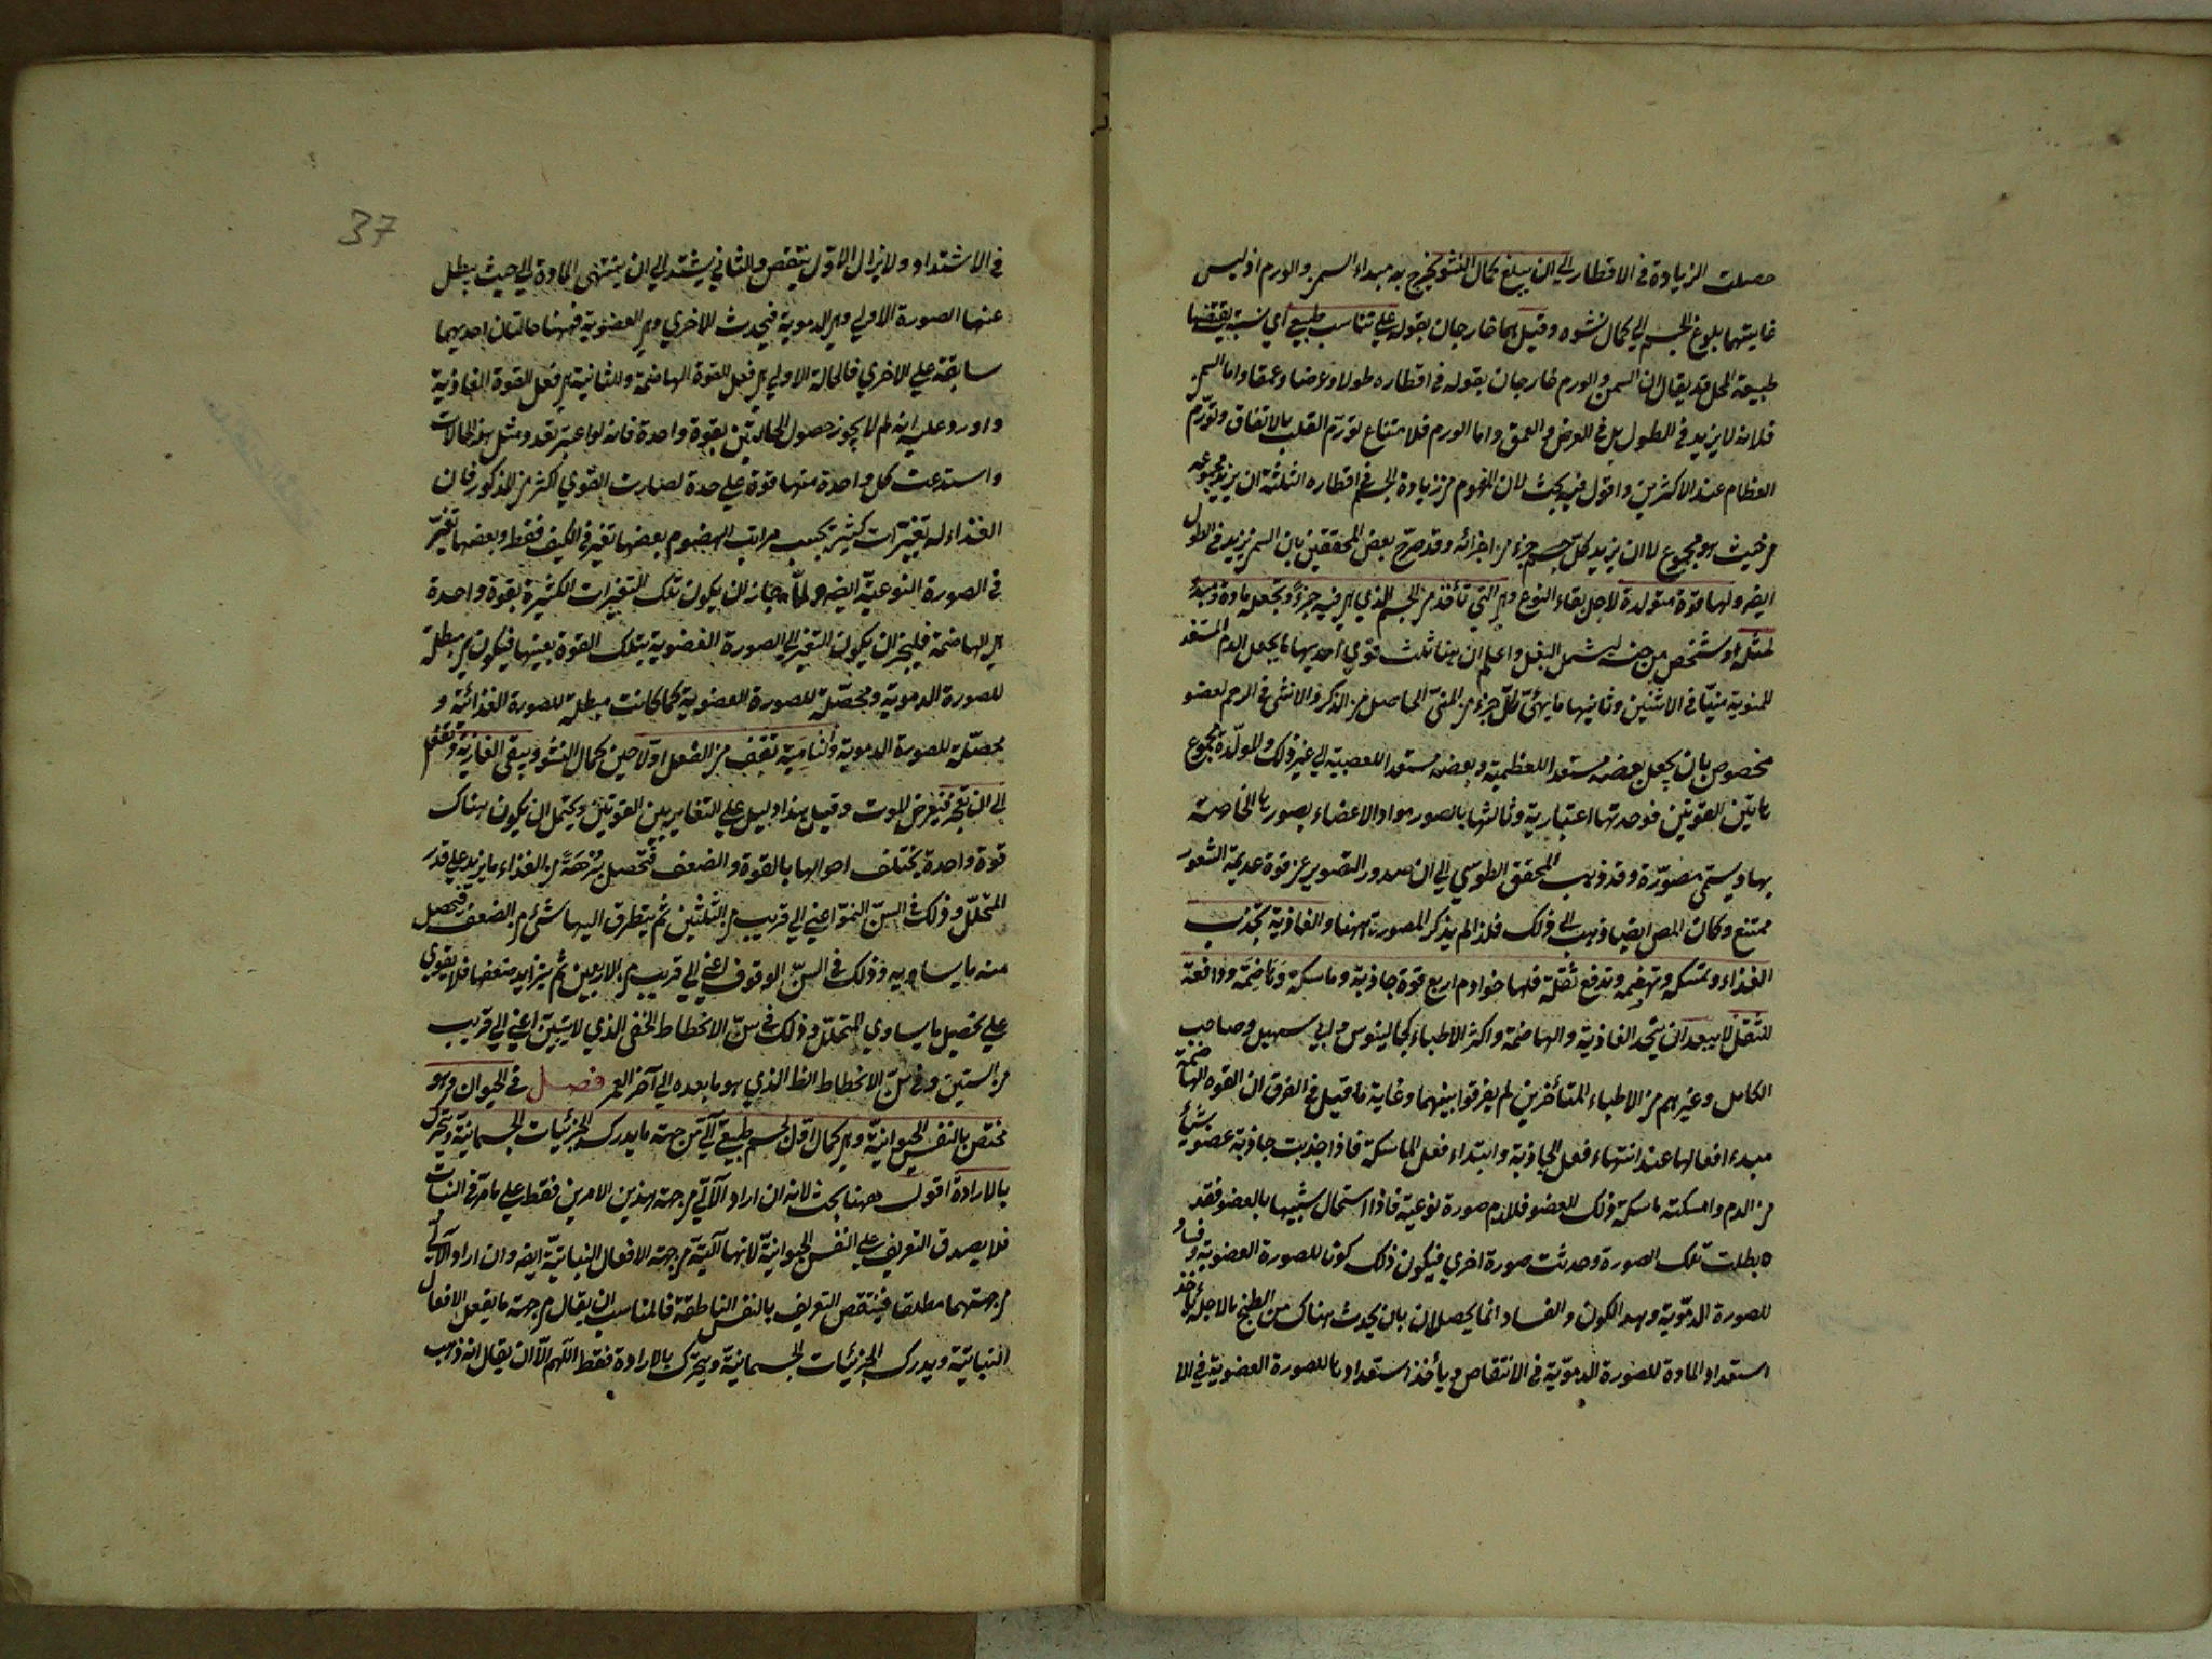 حصلت الزيادة في الاقطار الى ان يبلغ كمال النشو يخرج به مبداء السمن والورم اذ ليس
غايتهما بلوغ الجسم الي كمال نشوه وقيل هما خارجان بقوله علي تناسب طبيعي اي نسبة يقتضيها
طبيعة المحل قد يقال ان السمن والورم خارجان بقوله في اقطاره طولا وعرضا وعمقا واما السمن
فلانه لا يزيد في الطول بل في العرض والعمق واما الورم فلامتناع تورّم القلب بالاتفاق وتورّم
العظام عند الاكثرين واقول فيه بحث لان المفهوم من زيادة الجسم في اقطاره الثلثة ان يزيد مجموعه
من حيث هو مجموع لا ان يزيد كلّ جسم جزء من اجزائه وقد صرّح بعض المحققين بان السمن يزيد في الطول
ايضه ولها قوة متولدة لاجل بقاء النوع وهي التي تأخذ من الجسم الذي هي فيه جزءً وتجعله مادة ومبدءً
لمثله او شخص من جنسه ليشمل البغل واعلم ان هنا ثلث قوي احديها ما يجعل الدم المستعد
للمنوية منيّا في الانثيين وثانيها ما يهيّئ كلّ جزء من المنيّ الحاصل من الذكر والانثى في الرحم لعضو
مخصوص بان يجعل بعضه مستعدا للعظمية وبعضه مستعدا للعصبية الي غير ذلك والمولّدة مجموع
هاتين القوتين فوحدتها اعتبارية وثالثها ما يصور مواد الاعضاء بصورها الخاصة
بها ويسمّى مصوّرة وقد ذهب المحقق الطوسي الي ان صدور التصوير عن قوة عديمة الشعور
ممتنع وكان المص ايضا ذهب الى ذلك فلذا لم يذكر المصورة ههنا والغاذية تجذب
الغذاء وتمسكه وتهضمه وتدفع ثقله فلها خوادم اربع قوة جاذبة وماسكة وهاضمة ودافعة
للثقل لا يبعد ان يتحد الغاذية والهاضمة واكثر الاطباء كجالينوس وابي سهيل وصاحب
الكامل وغيرهم من الاطباء المتأخرين لم يفرقوا بينهما وغاية ما قيل في الفرق ان القوه الهاضمة
مبدء افعالها عند انتهاء فعل الجاذبة وابتداء فعل الماسكة فاذا جذبت جاذبة عضو شيأ
من الدم وامسكته ماسكة ذلك العضو فللدم صورة نوعية فاذا استحال شبيها بالعضو فقد
بطلت تلك الصورة وحدثت صورة اخري فيكون ذلك كونا للصورة العضوية وفسادا
للصورة الدمّوية وهذا الكون والفساد انما يحصلان بان يحدث هناك من الطبخ ما لاجله يأخذ
استعداد المادة للصورة الدموّية في الانتقاص ويأخذ استعدادها للصورة العضوية في الا
37
في الاشتداد ولا يزال الاوّل ينقص والثاني يشتد الي ان ينتهى المادة الي حيث يبطل
عنها الصورة الاولي وهي الدموية فيحدث الاخري وهي العضوية فههنا حالتان احديهما
سابقة علي الاخري فالحالة الاولي هي فعل القوة الهاضمة والثانية هي فعل القوة الغاذية
واورد عليه انه لم لا يجوز حصول الحالتين بقوة واحدة فانه لو اعتبر تعدد مثل هذه الحالات
واستدعت كل واحدة منها قوة علي حدة لصارت القوي اكثر من المذكور فان
الغذاء له تغيّرات كثيرة بحسب مراتب الهضوم بعضها تغير في الكيف فقط وبعضها تغيّر
في الصورة النوعيّة ايضه ولمّا جاز ان يكون تلك التغيرات الكثيرة بقوة واحدة
هي الهاضمة فليجز ان يكون التغير الي الصورة العضوية بتلك القوة بعينها فيكون هي مبطلة
للصورة الدموية ومحصّلة للصورة العضوية كما كانت مبطلة للصورة الغذائية و
محصّلة للصورة الدموية والنامية تقف من الفعل اوّلا حين كمال النشو ويبقى الغاذية وتفعل
الى ان تعجز فيعرض الموت وقيل هذا دليل علي التغاير بين القوتين ويحتمل ان يكون هناك
قوة واحدة يختلف احوالها بالقوة والضعف فتحصل بُرْهةً من الغذاء ما يزيد على قدر
المتحلّل وذلك في السنّ النموّ اعني الي قريب من الثلثين ثم يتطرق اليها شئ من الضعف فتحصل
منه ما يساويه وذلك في السنّ الوقوف اعني الي قريب من الاربعين ثم يتزايد ضعفها فلا يقوي
علي تحصيل ما يساوي المتحلّل وذلك في سنّ الانحطاط الخفى الذي لا يتبيّن اعني الي قريب
من الستين وفى سنّ الانحطاط الظ الذي هو ما بعده الي آخر العمر فصل في الحيوان وهو
مختص بالنفس الحيوانيّة وهي كمال اوّل لجسم طبيعيّ آليّ من جهة ما يدرك الجزئيات الجسمانية ويتحرّك
بالارادة اقول ههنا بحث لانه ان اراد الآلي من جهة هذين الامرين فقط علي ما مرّ في النبات
فلا يصدق التعريف علي النفس الحيوانيّة لانها آليّة من جهة الافعال النباتيّة ايضه وان اراد الآلي
من جهتهما مطلقا فينتقض التعريف بالنفس الناطقة فالمناسب ان يقال من جهة ما يفعل الافعال
النباتيّة ويدرك الجزئيات الجسمانيّة ويتحرك بالارادة فقط اللّهم الّا ان يقال انه ذهب